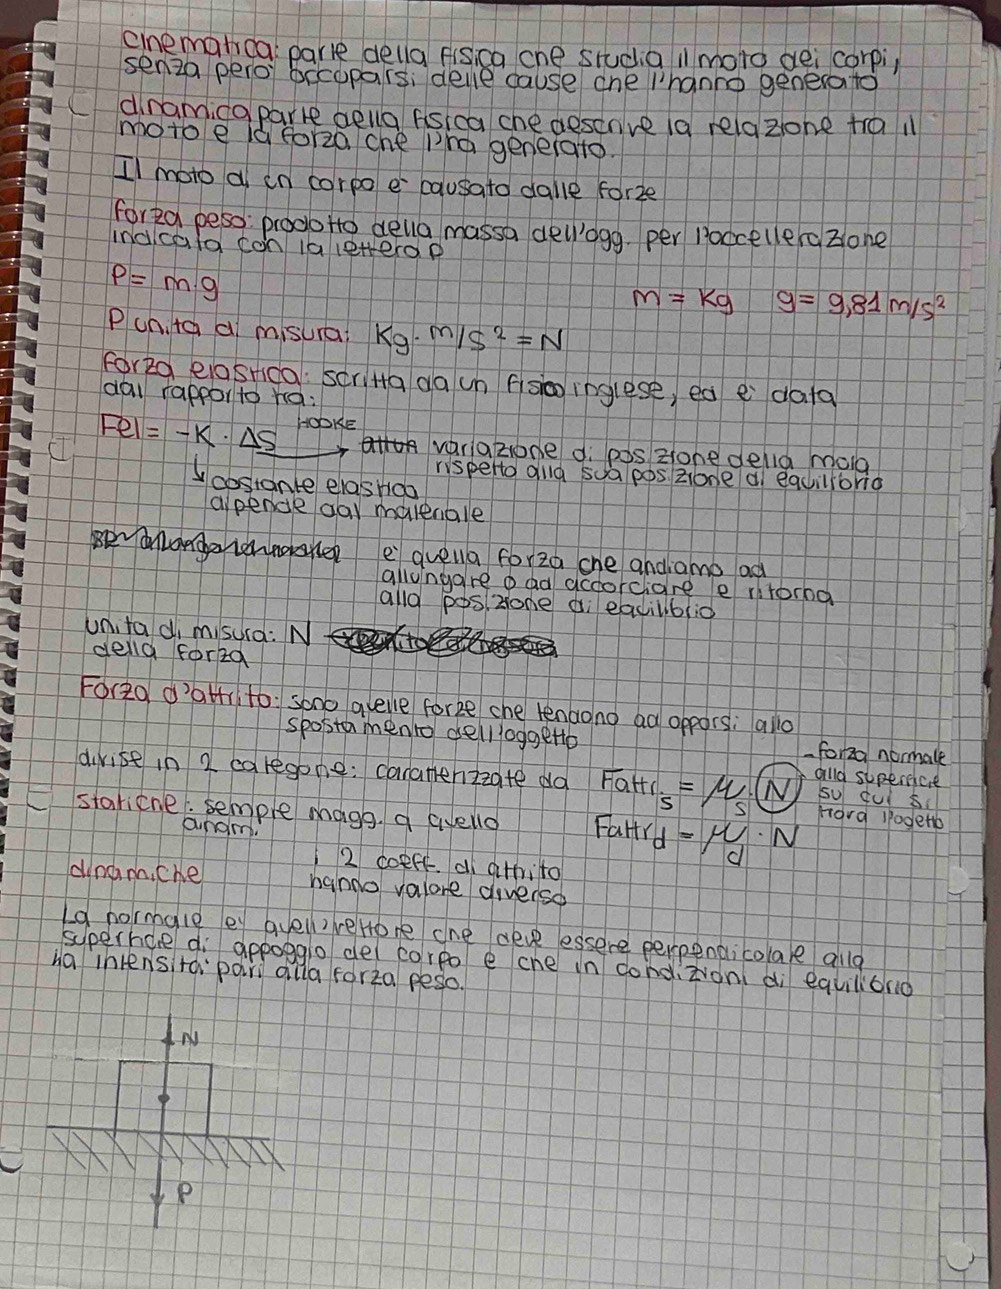 cinematica: parte della fisica che studia il moto dei corpi,
senza però occuparsi delle cause che l'hanno generato
dinamica parte della fisica che descrive la relazione tra il
moto e la forza che l'ha generato.
Il moto di un corpo è causato dalle forze
forza peso: prodotto della massa dell'ogg. per l'accellerazione
indicata con la lettera p
P= m.g
m = Kg g= 9,81 m/s²
P unita di misura: Kg. m/s² = N
forza elastica: scritta da un fisico inglese, ed è data
dal rapporto tra:
HOOKE
Fel= -K . ΔS → variazione di posizione della mola
rispetto alla sua posizione di equilibrio
↳ costante elastica
dipende dal materiale
è quella forza che andiamo ad
allungare o ad accorciare e ritorna
alla posizione di equilibrio
unita di misura: N
della forza
Forza d'attrito: sono quelle forze che tendono ad opporsi allo
spostamento dell'oggetto
- forza normale
alla superficie
su cui si
trova l'ogetto
divise in 2 categorie: caratterizzate da Fattr s = μs . N
statiche: sempre magg. a quello
dinam.
Fattr d = μd . N
i 2 coeff. di attrito
hanno valore diverso
dinamiche
La normale è quell'vettore che deve essere perpendicolare alla
superficie di appoggio del corpo e che in condizioni di equilibrio
ha intensità pari alla forza peso.
N
P